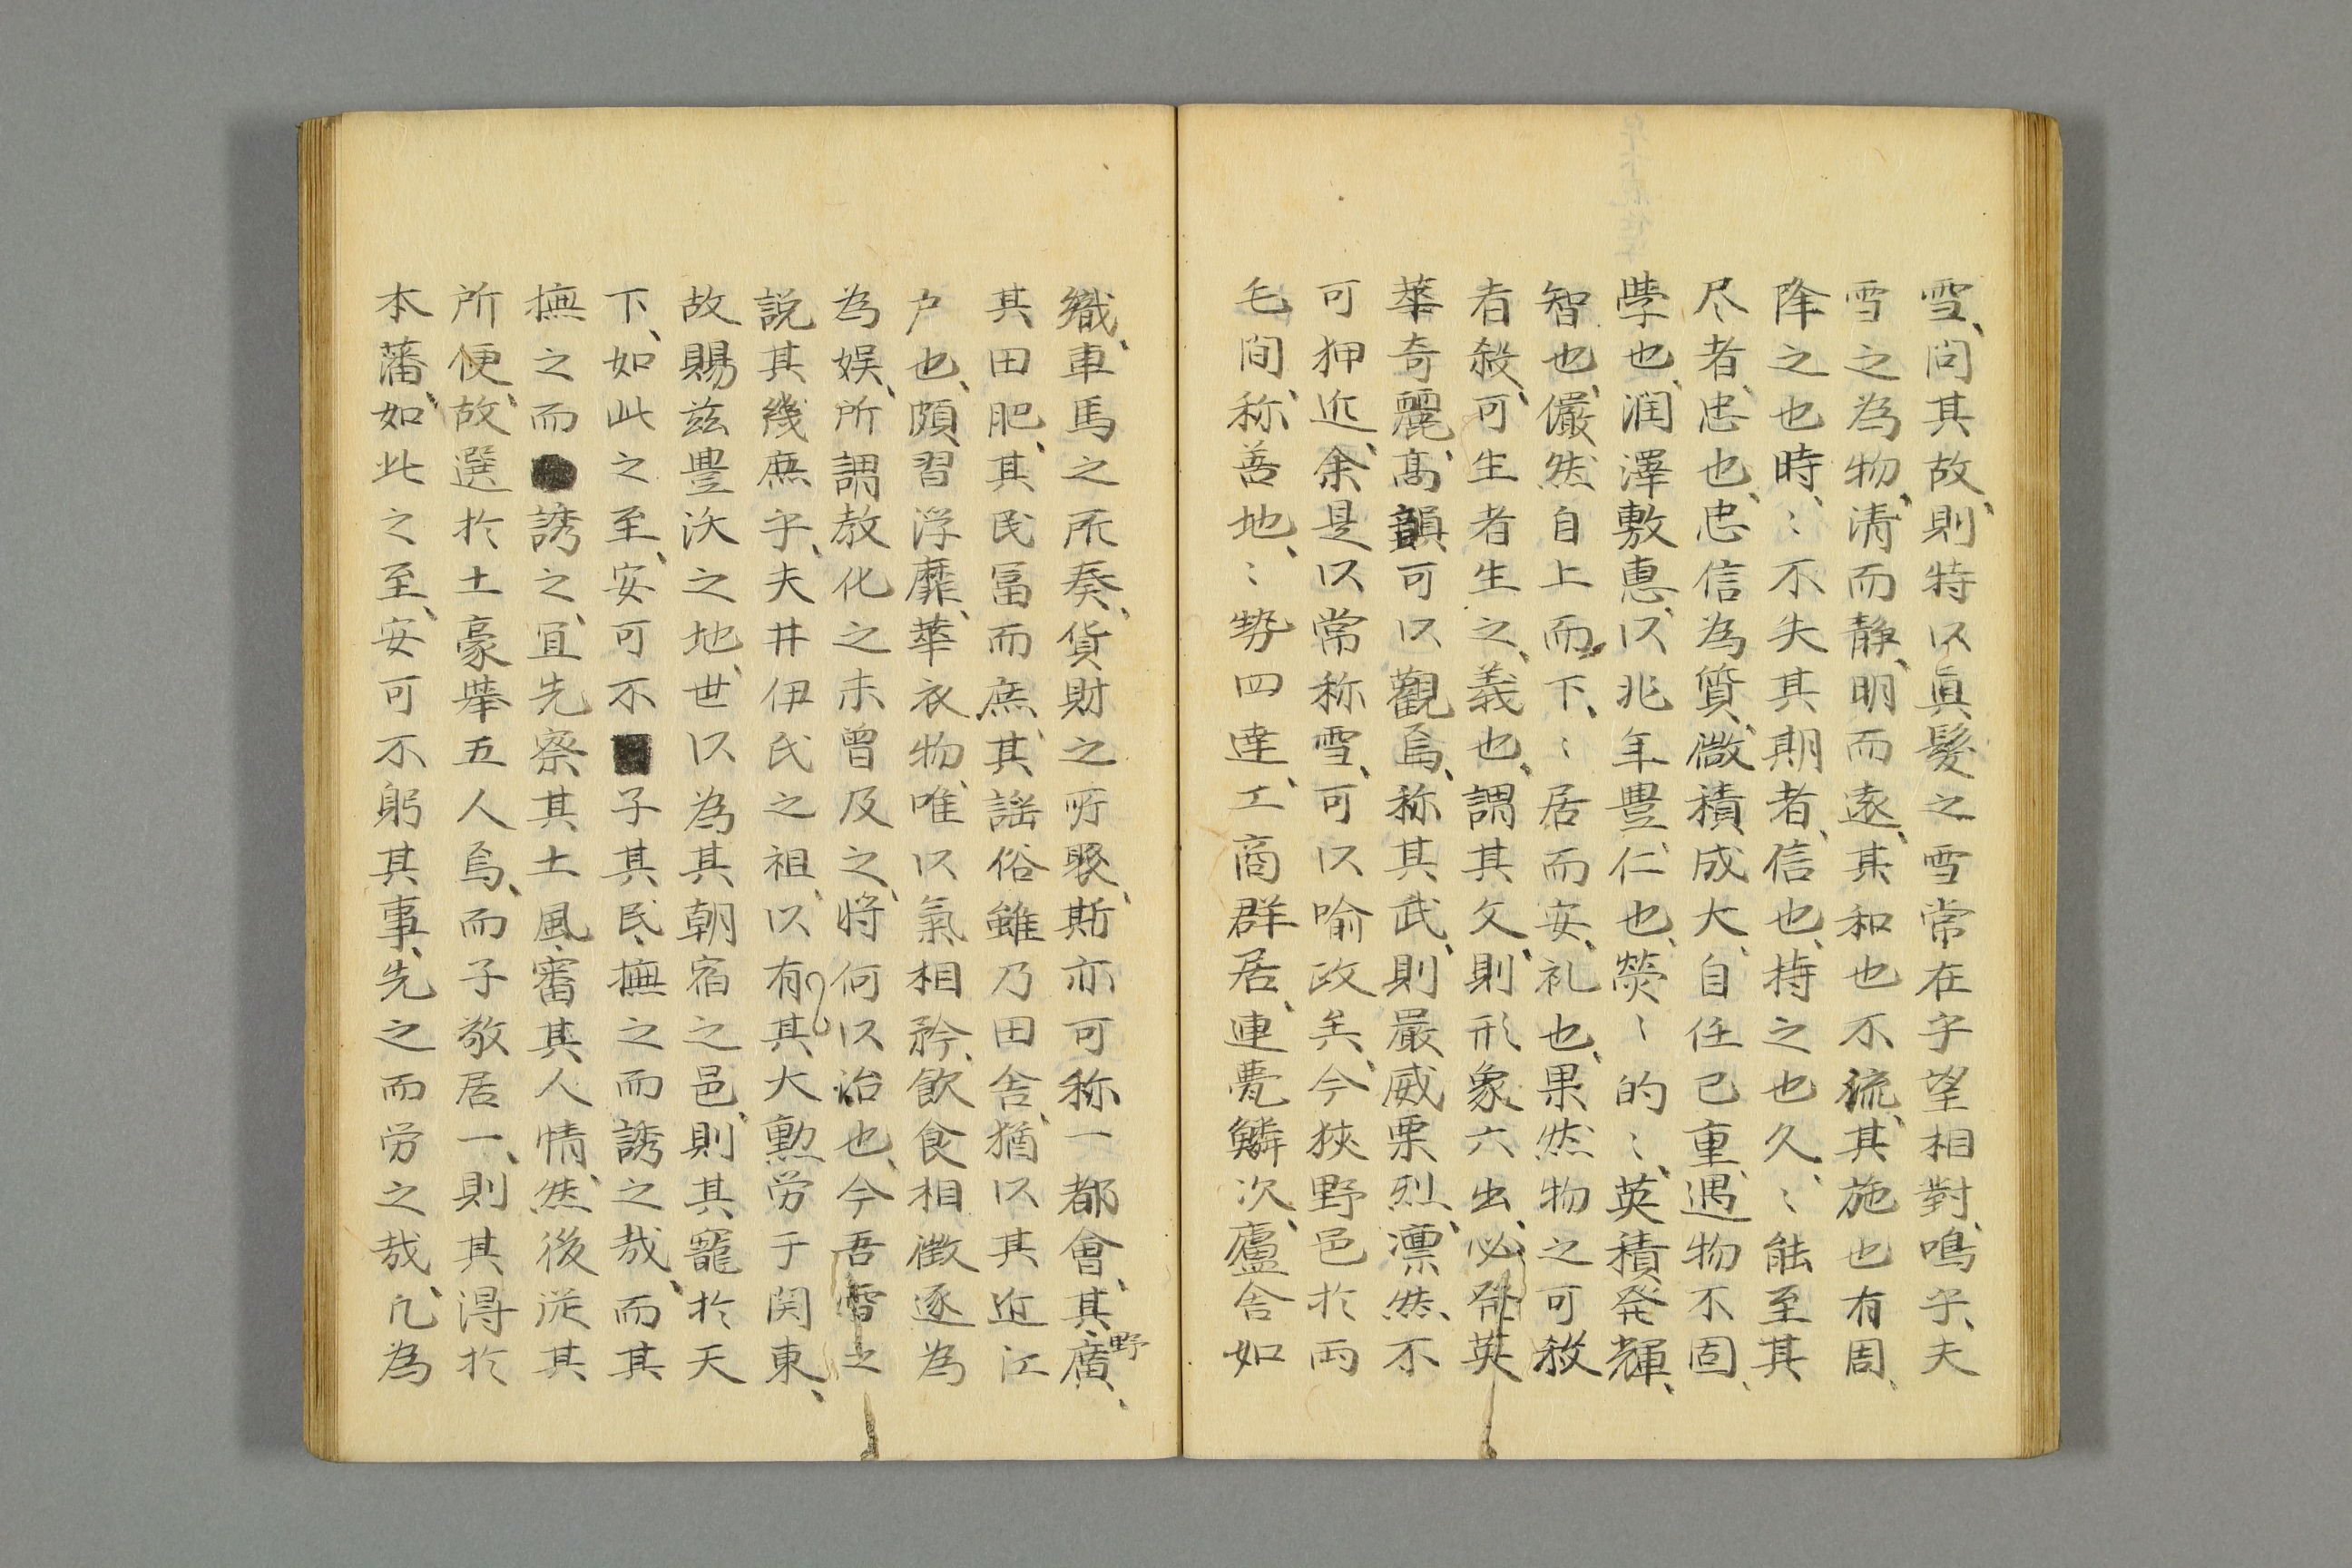 雪、問其故、則特以眞髮之雪常在字望相對、鳴乎、夫
雪之為物、清而静、明而遠、其和也不流、其施也有周、
降之也時、〻不失其期者、信也、持之也久、〻能至其
尽者、忠也、忠信為質、微積成大、自任已重、遇物不固、
學也、潤澤敷惠、以兆年豊、仁也、熒〻的〻、英積発輝、
智也、儼然自上而下、〻居而安、礼也、果然物之可殺
者殺、可生者生之、義也、謂其文、則形象六出、必発英
華奇麗、高韻可以觀焉、称其武、則嚴威栗烈、凛然、不
可狎近、余是以常称雪、可以喻政矣、今狹野邑於両
毛間、称善地、〻勢四達、工商群居、連甍鱗次、廬舎如
織、車馬之所奏、貨財之所聚、斯亦可称一都會、其野廣、
其田肥、其民冨而庶、其謡俗雖乃田舎、猶以其近江
戸也、頗習浮靡、華衣物、唯以氣相矜、飲食相徴逐為
為娯、所謂教化之未曽及之、将何以治也、今吾雪之
説其幾庶乎、夫井伊氏之祖、以有其大勲労于関東、
故賜兹豊沃之地、世以為其朝宿之邑、則其寵於天
下、如此之至、安可不子其民、撫之而誘之哉、而其
撫之而誘之、宜先察其土風、審其人情、然後従其
所便、故選於土豪舉五人焉、而子敬居一、則其得於
本藩、如此之至、安可不躬其事、先之而労之哉、凡為